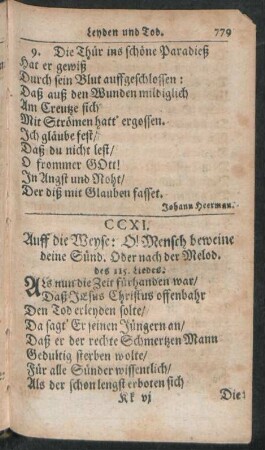 Leyden und Tod. 779
9. Die Thür ins schöne Paradieß
Hat er gewiß
Durch sein Blut auffgeschlossen:
Daß auß den Wunden mildiglich
Am Creutze sich
Mit Strömen hatt' ergossen.
Ich gläube fest/
Daß du nicht lest/
O frommer GOtt!
In Angst und Noht/
Der diß mit Glauben fasset.
Johann Heerman.
CCXI.
Auff die Weyse: O! Mensch beweine
deine Sünd. Oder nach der Melod.
des 115. Liedes.
ALs nun die Zeit fürhanden war/
Daß JEsus Christus offenbahr
Den Tod erleyden solte/
Da sagt' Er seinen Jüngern an/
Daß er der rechte Schmertzen Mann
Gedultig sterben wolte/
Für alle Sünder wissentlich/
Als der schon lengst erboten sich
Kk vj Die